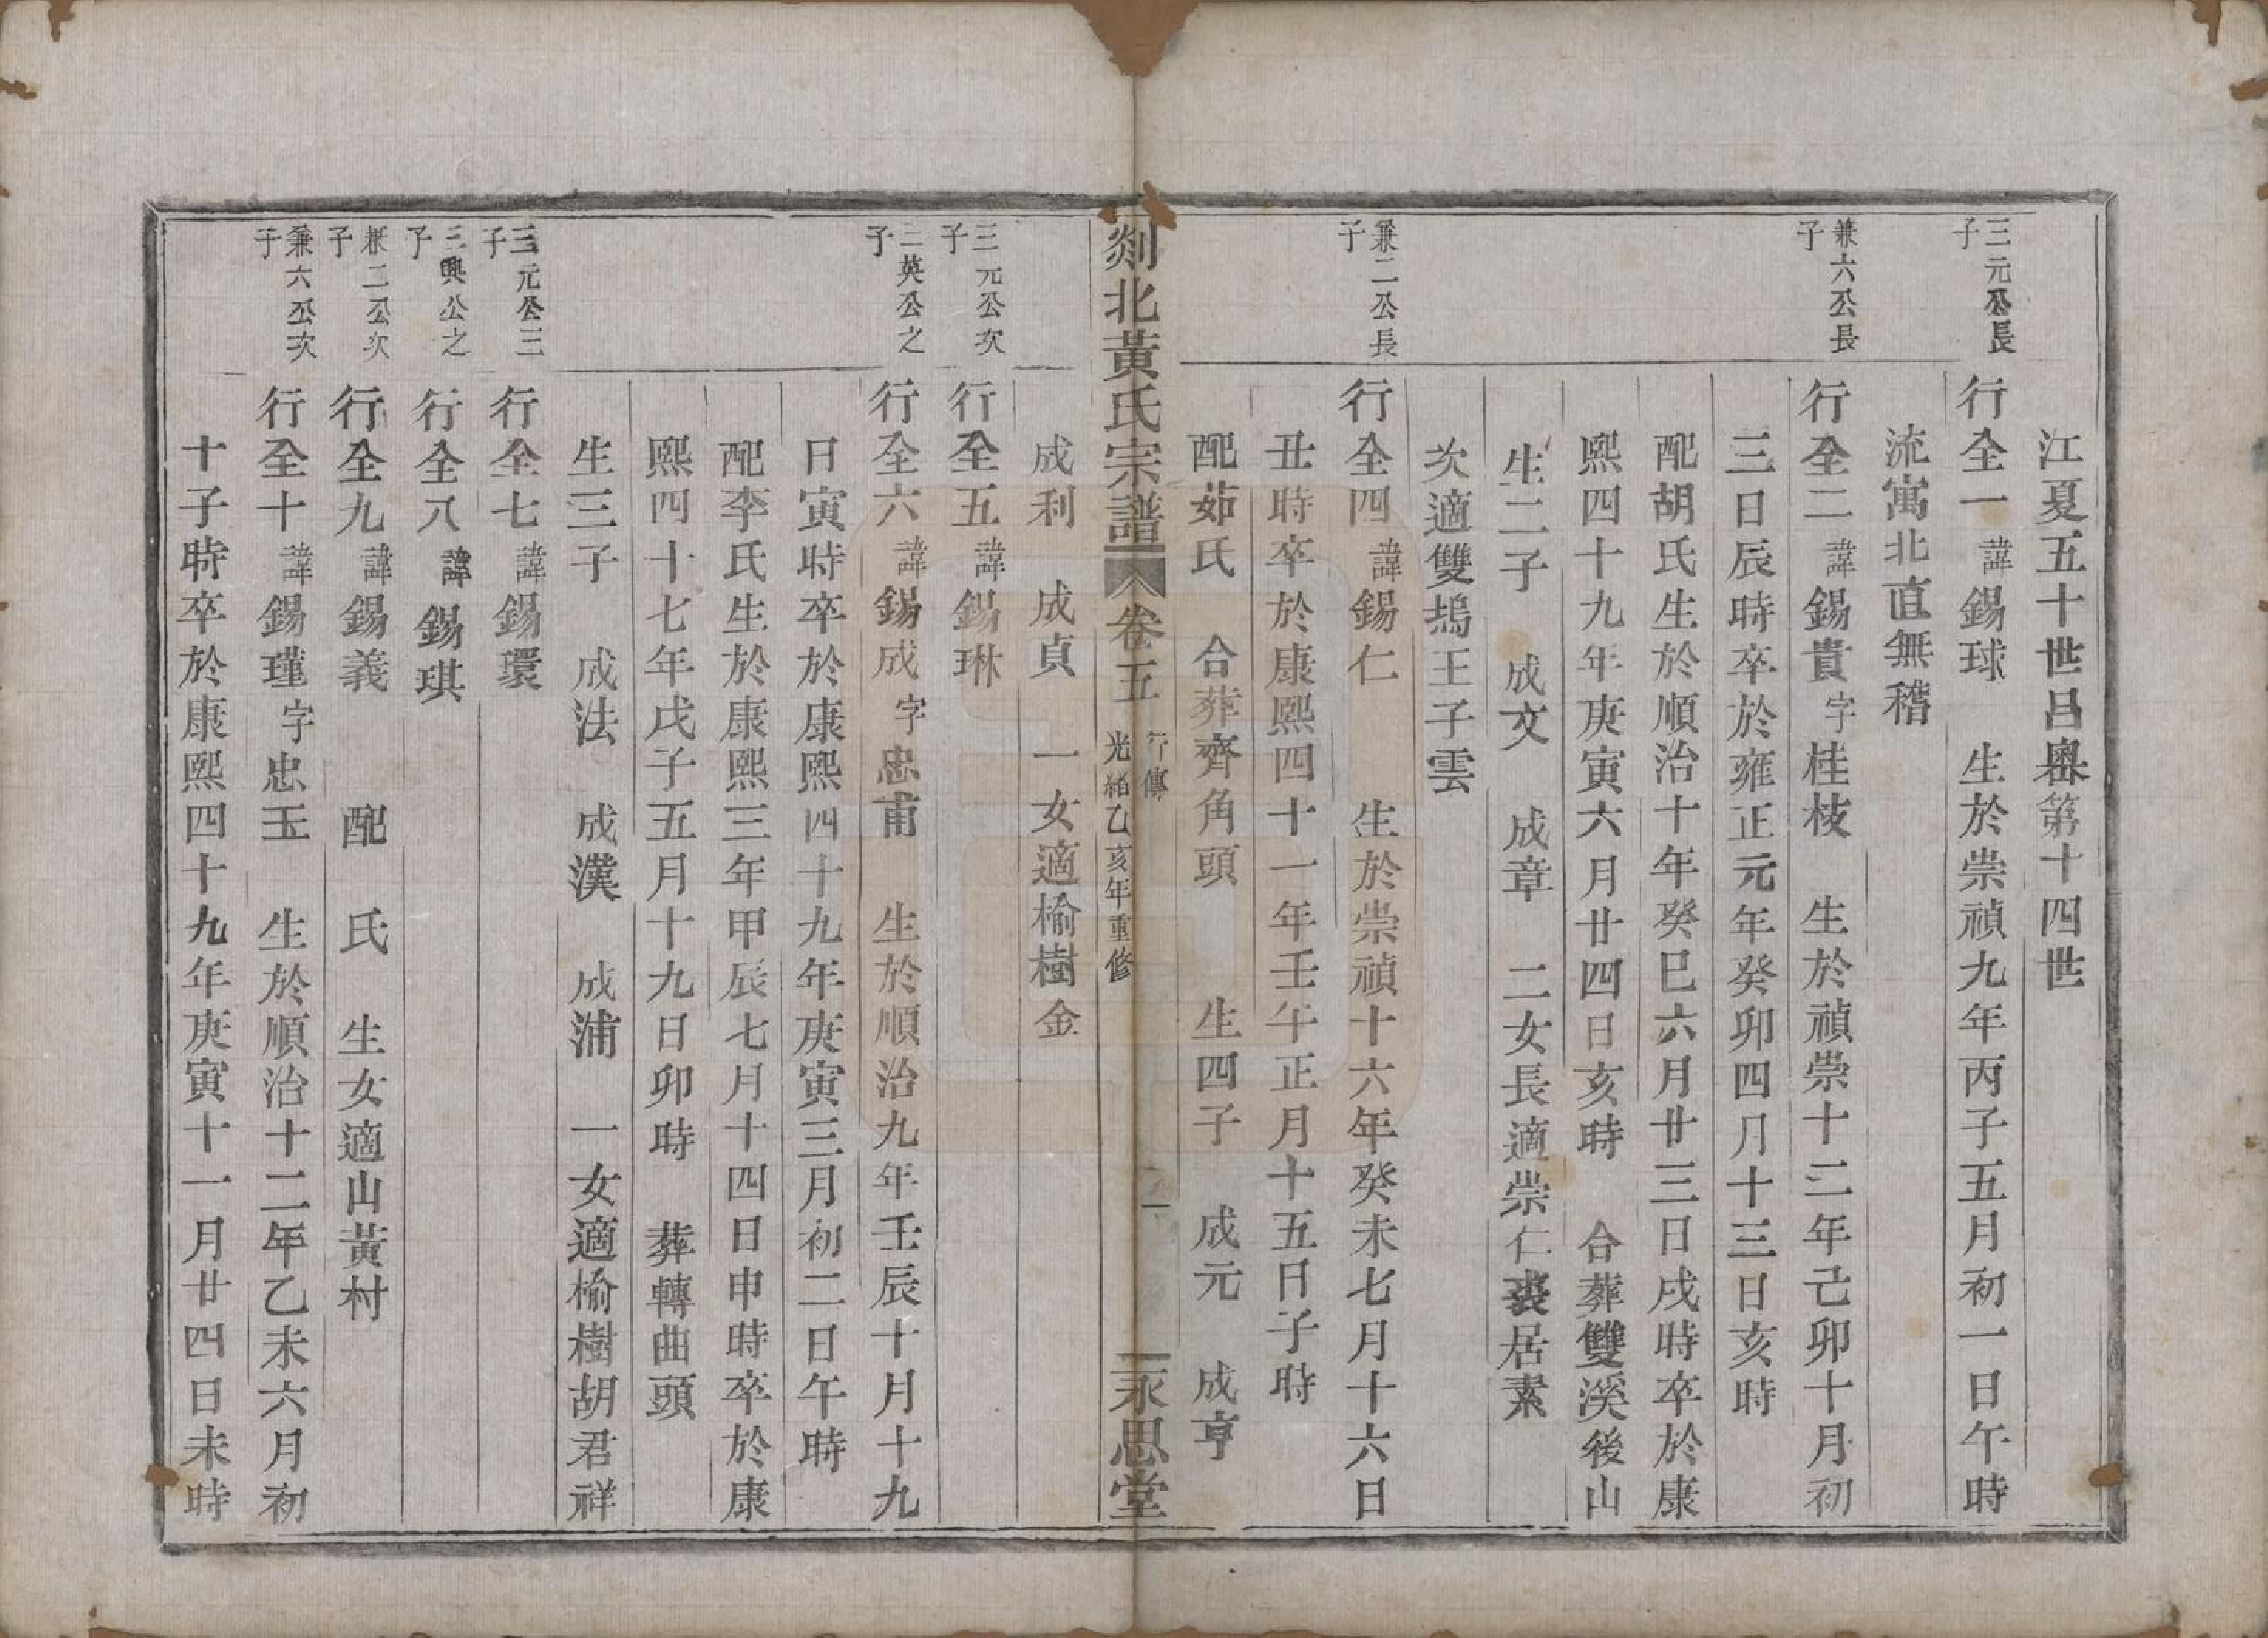 江夏五十世呂嶴第十四世
三元公長子
行全一諱錫球　生於崇禎九年丙子五月初一日午時
流寓北直無稽
兼六公長子
行全二諱錫貴字桂枝　生於禎崇十二年己卯十月初
三日辰時卒於雍正元年癸卯四月十三日亥時
配胡氏生於順治十年癸巳六月廿三日戌時卒於康
熙四十九年庚寅六月廿四日亥時　合葬雙溪後山
生二子　成文　成章　二女長適崇仁裘居素
次適雙塢王子雲
兼二公長子
行全四諱錫仁　生於崇禎十六年癸未七月十六日
丑時卒於康熙四十一年壬午正月十五日子時
配茹氏　合葬齊角頭　生四子　成元　成亨
剡北黃氏宗譜　卷五　行傳　光緒乙亥年重修　一　永思堂
成利　成貞　一女適榆樹金
三元公次子
行全五諱錫琳
二英公之子
行全六諱錫成字忠甫　生於順治九年壬辰十月十九
日寅時卒於康熙四十九年庚寅三月初二日午時
配李氏生於康熙三年甲辰七月十四日申時卒於康
熙四十七年戊子五月十九日卯時　葬轉曲頭
生三子　成法　成漢　成浦　一女適榆樹胡君祥
三元公三子
行全七諱錫環
三興公之子
行全八諱錫琪
兼二公次子
行全九諱錫義　配　氏　生女適山黃村
兼六公次子
行全十諱錫瑾字忠玉　生於順治十二年乙未六月初
十子時卒於康熙四十九年庚寅十一月廿四日未時